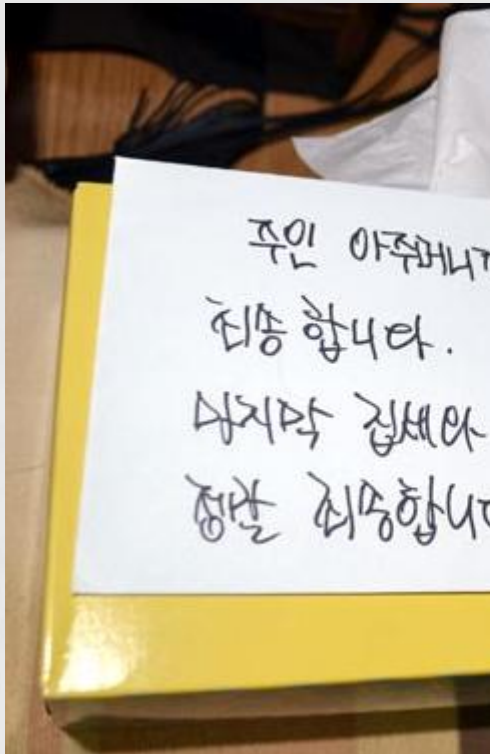 주인 아주머니께
죄송합니다.
마지막 집세와
정말 죄송합니다